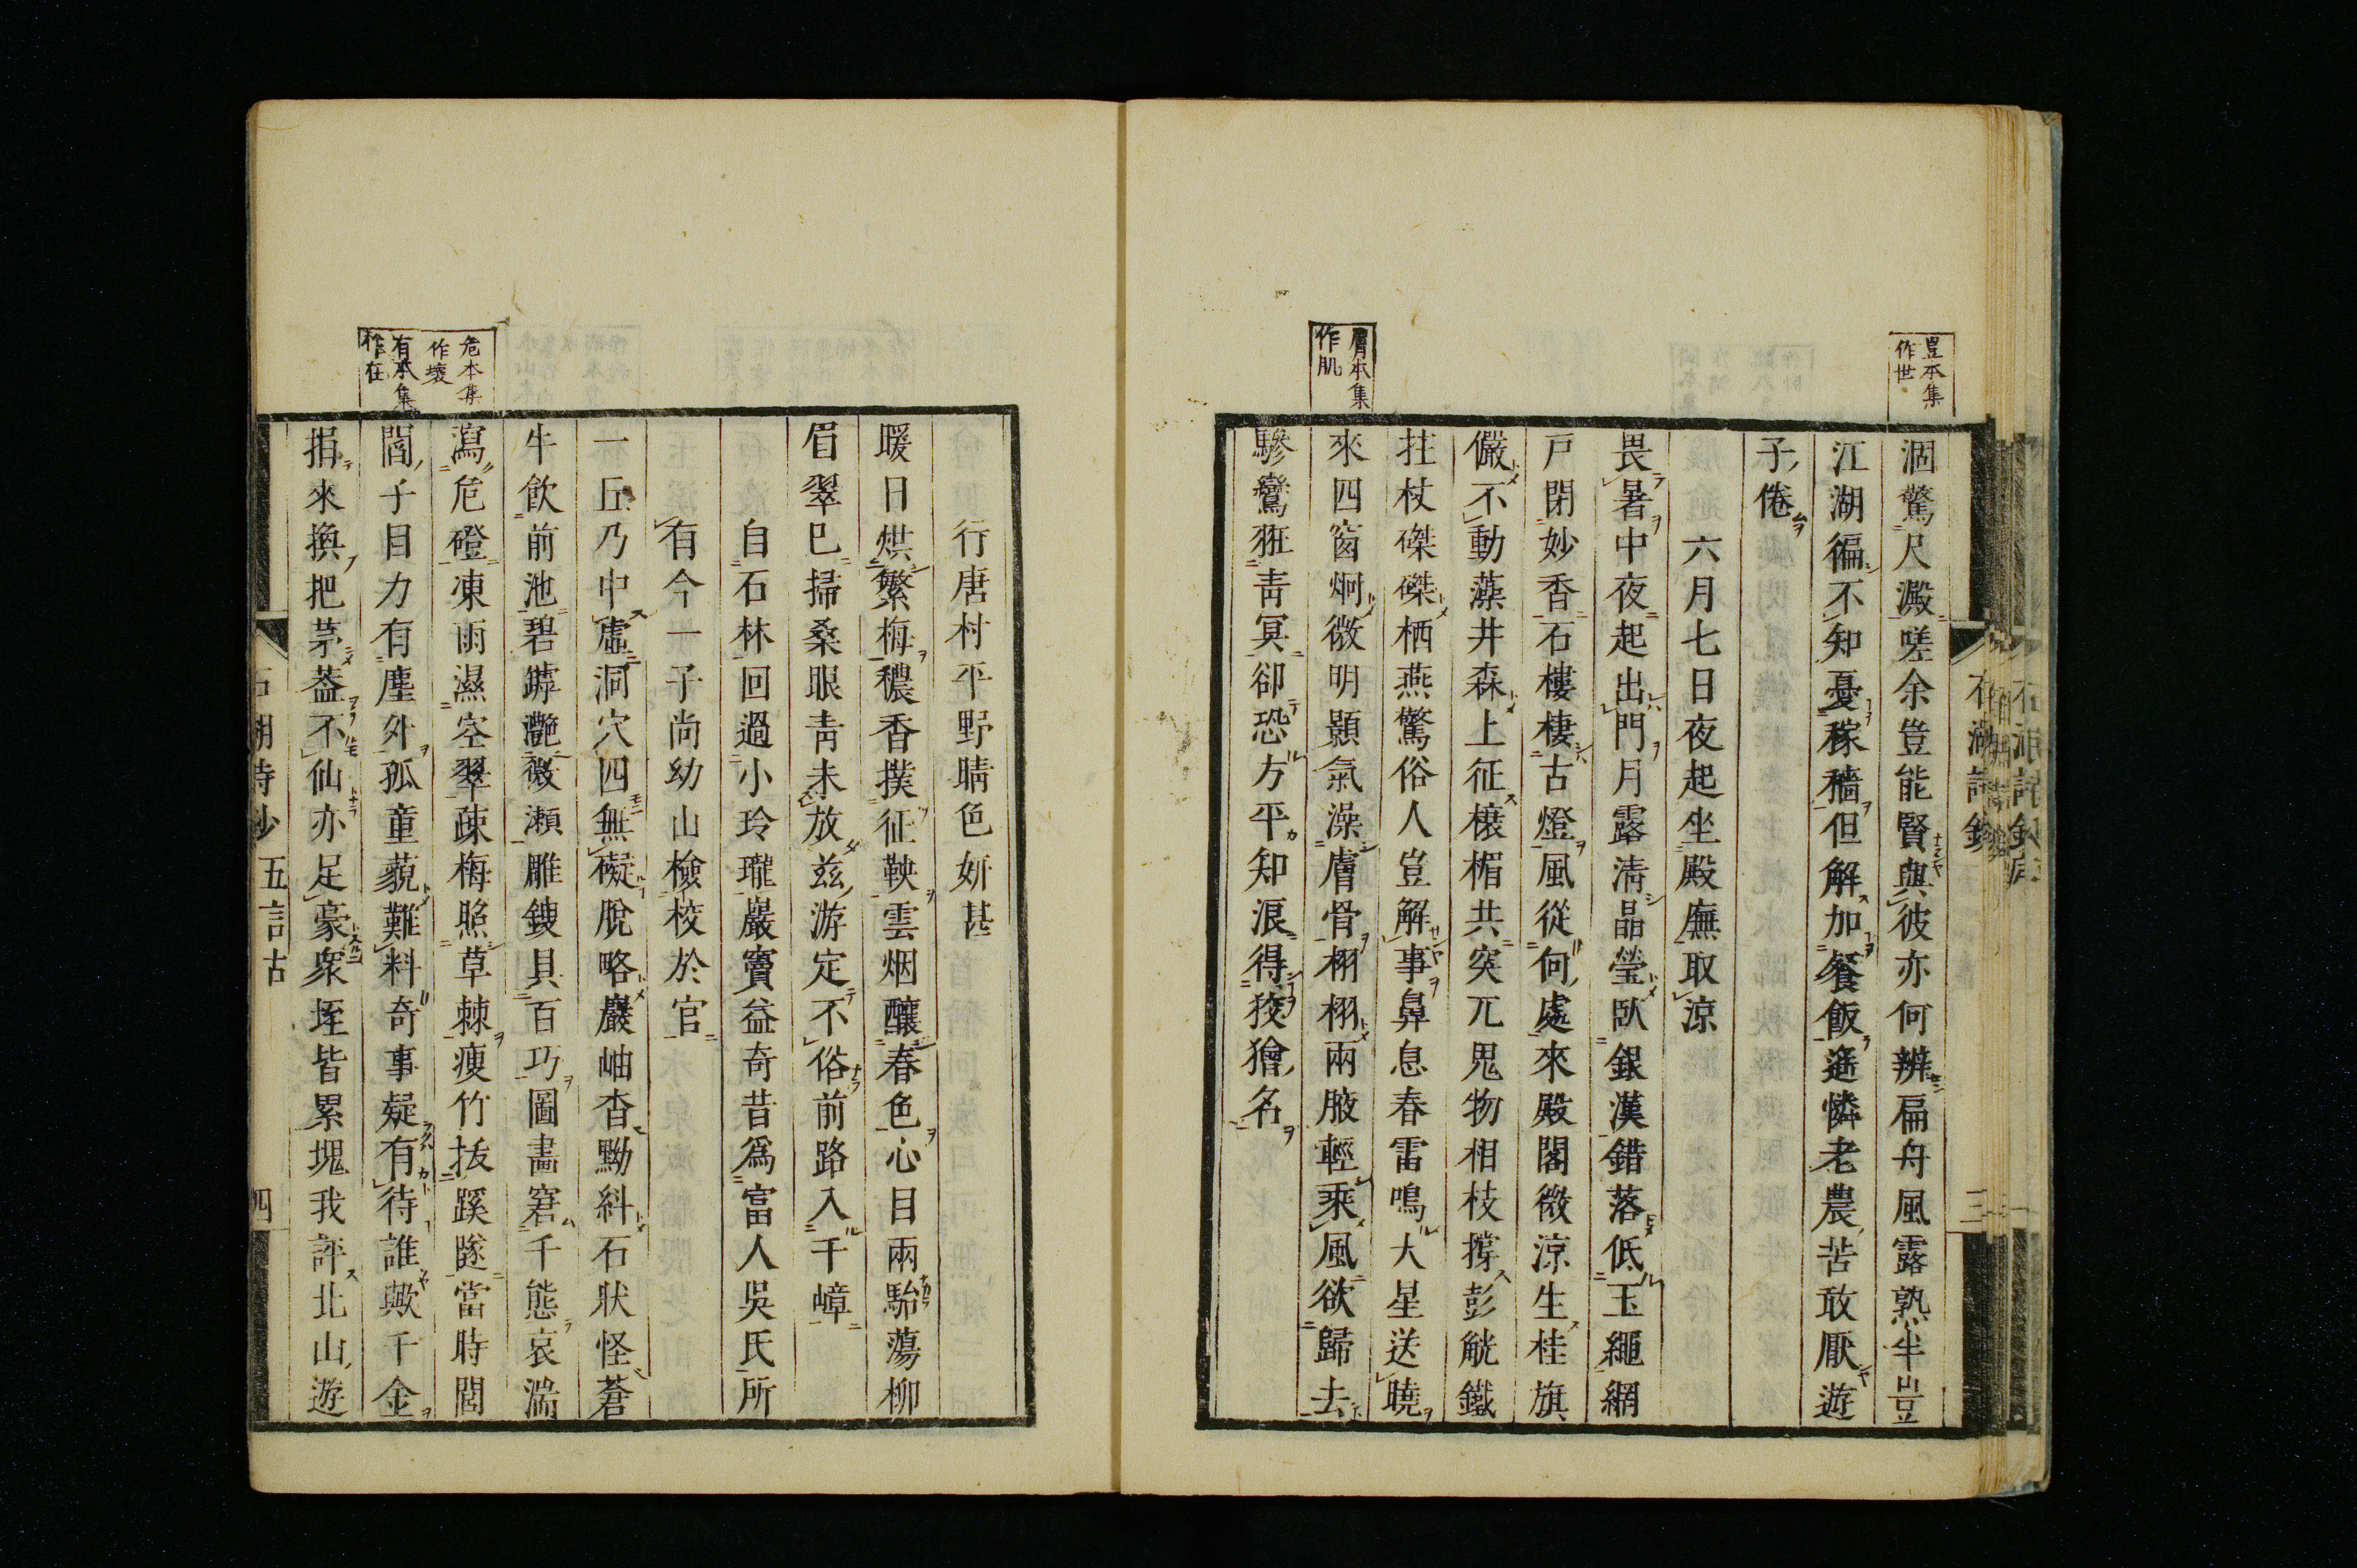 豈本集
作世
涸驚尺澱嗟余豈能賢與彼亦何辨扁舟風露熟半豈
江湖徧不知憂稼穡但解加餐飯遙憐老農苦敢厭遊
子倦
六月七日夜起坐殿廡取涼
畏暑中夜起出門月露清晶瑩臥銀漢錯落低玉繩網
戸閉妙香石樓棲古燈風從何處來殿閣微涼生桂旗
儼不動藻井森上征榱楣共突兀鬼物相枝撐彭觥鐵
拄杖磔磔栖燕驚俗人豈解事鼻息春雷鳴大星送曉
膚本集
作肌
來四窗炯微明顥氣澡膚骨栩栩兩腋輕乘風欲歸去
驂鸞狂青冥卻恐方平知浪得狡獪名
石湖詩鈔
三
行唐村平野晴色妍甚
暖日烘繁梅穠香撲征鞅雲烟釀春色心目兩駘蕩柳
眉翠已掃桑眼青未放玆游定不俗前路入千嶂
自石林回過小玲瓏巖竇益奇昔爲富人吳氏所
有今一子尚幼山檢校於官
一丘乃中虛洞穴四無礙脫略巖岫杳黝糾石狀怪蒼
牛飲前池碧罅灧微瀨雕鎪具百巧圖畫窘千態哀湍
危本集
作壞
瀉危磴凍雨濕空翠疎梅照草棘瘦竹拔蹊隧當時閭
有本集
作在
閻子目力有塵外孤童藐難料奇事疑有待誰歟千金
捐來換把茅葢不仙亦足豪衆垤皆累塊我評北山遊
石湖詩鈔 五言古
四